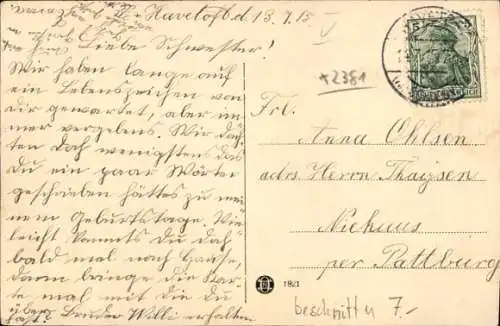 Havetoft d 13.7.15
Liebe Schwester!
Wir haben lange auf
ein Lebenszeichen von
dir gewartet, aber im
mer vergebens. Wir dach
ten doch wenigstens das
du ein paar Wörter
geschrieben hättes zu mei
nem Geburtstage. Vie
leicht kommts du doch
bald mal nach Hause,
dann bringe die Kar
te mal mit die du
über Bruder Willi erhalten
hast.
*2381
Frl.
Anna Ohlsen
adrs Herrn Thaysen
Niehuus
per Pattburg
1821
beschnitten 7.-